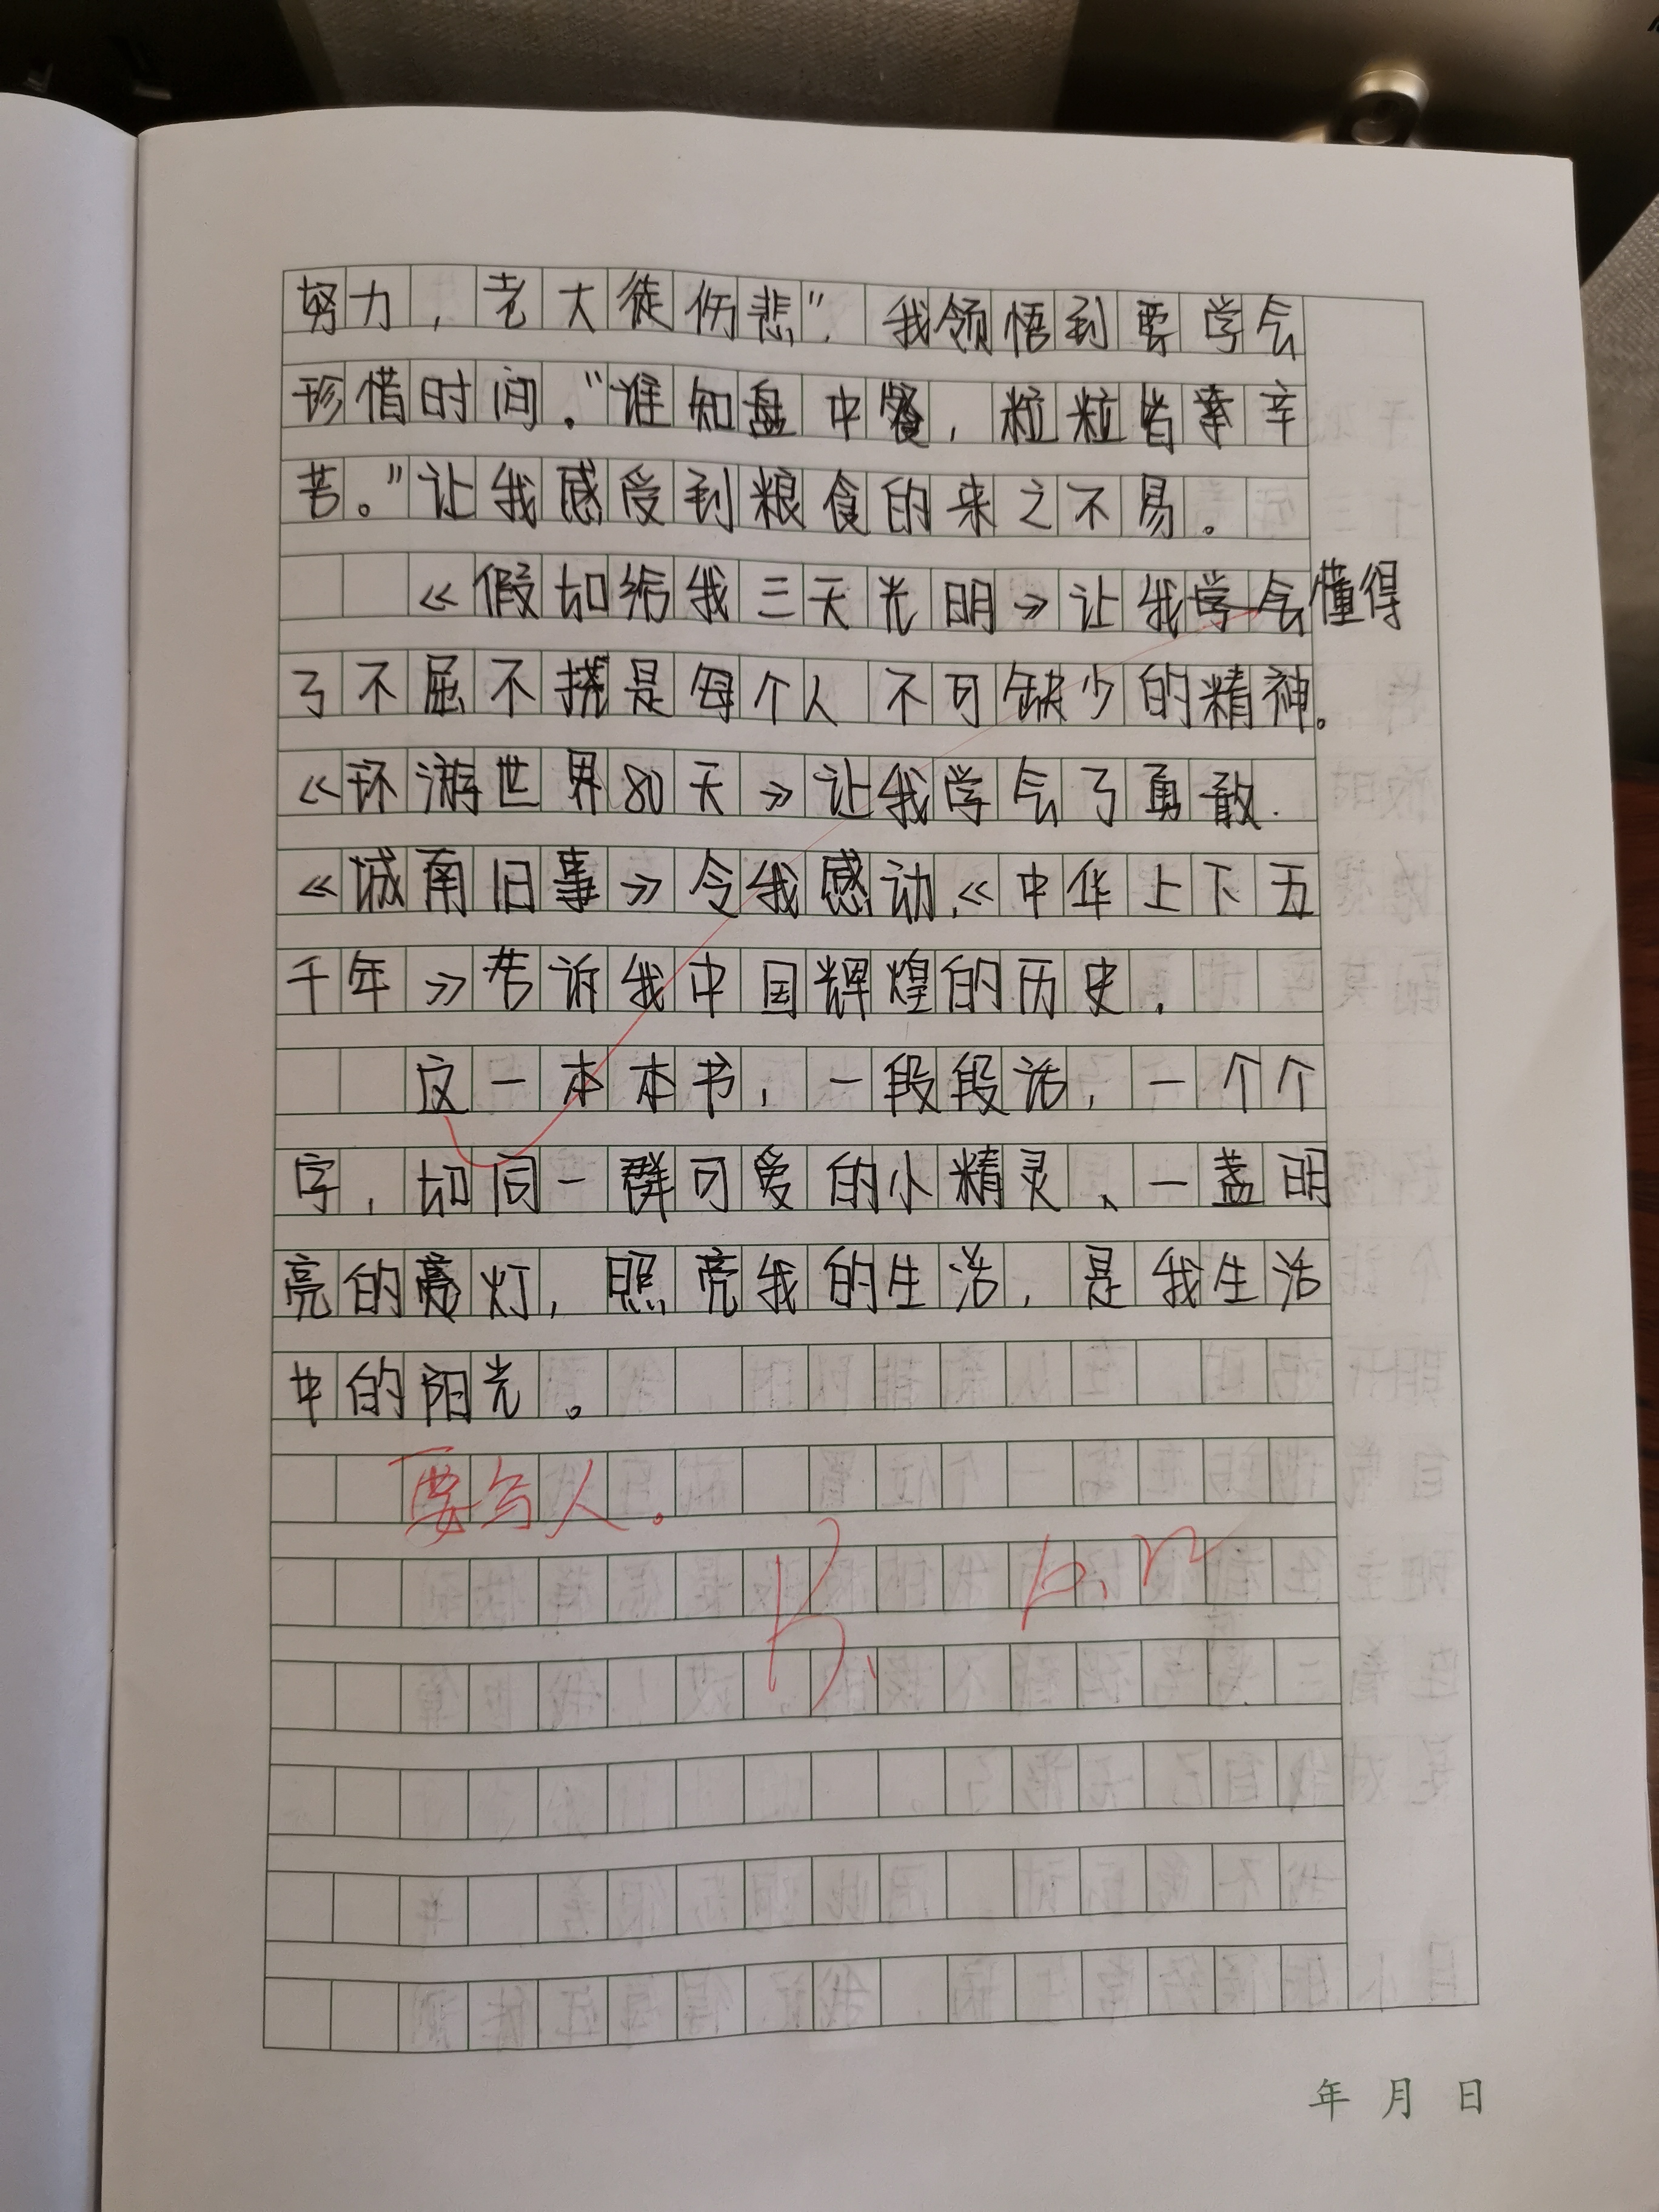 努力，老大徒伤悲”．我领悟到要学会
珍惜时间．“谁知盘中餐，粒粒皆辛
苦。”让我感受到粮食的来之不易。
《假如给我三天光明》让我懂得
了不屈不挠是每个人不可缺少的精神。
《环游世界80天》让我学会了勇敢．
《城南旧事》令我感动．《中华上下五
千年》告诉我中国辉煌的历史．
这一本本书，一段段话，一个个
字，如同一群可爱的小精灵、一盏明
亮的亮灯，照亮我的生活，是我生活
中的阳光。
要写人。
年 月 日